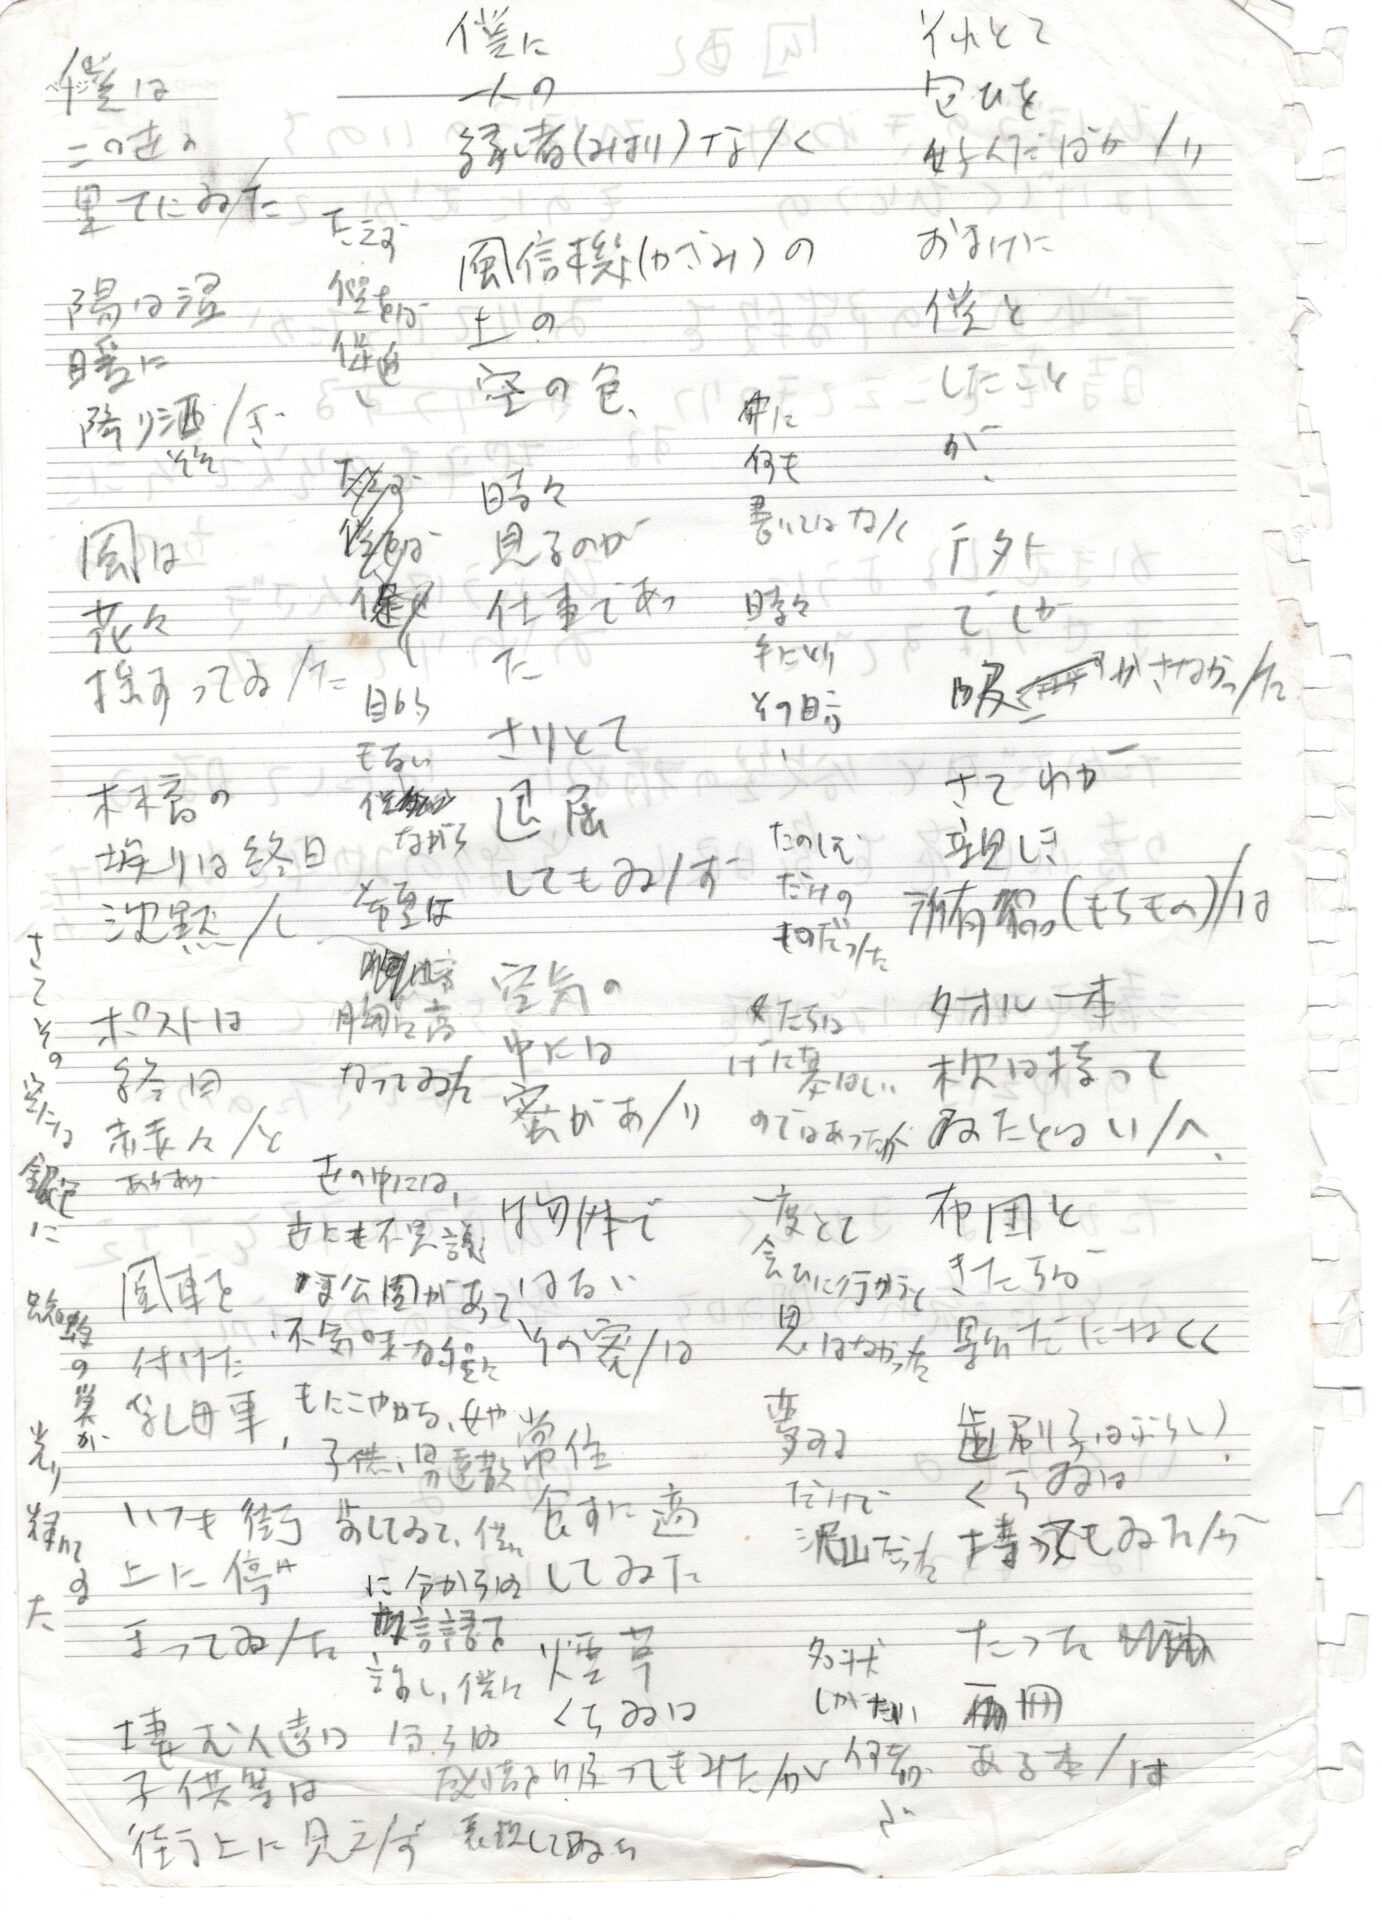 僕は
この世の
果てにゐ/た
陽は温
暖に
降り洒/ぎ
そそ
風は
花々
揺すってゐ/た
木橋の
埃りは終日
沈黙/し
ポストは
終日
赤々/と
あかあか
風車を
付けた
乳母車、
いつも街
上に停
まってゐ/た
棲む人達は
子供等は
街上に見え/ず
僕に
一人の
縁者(みより)な/く
風信機(かざみ)の
上の
空の色、
時々
見るのが
仕事であつ
た
さりとて
退屈
してもゐ/ず
空気の
中には
蜜があ/り
物体で
はない
その蜜/は
常住
食すに適
してゐた
煙草
くらゐは
吸ってもみた/が
それとて
匂ひを
好んだばか/り
おまけに
僕と
したこと
が、
戸外
でしか
吸
かさなかっ/た
さてわが
親しき
所有品(もちもの)/は
タオル一本
枕は持って
ゐたとはい/へ、
布団と
きたらば
影だになく
歯刷子(はぶらし)
くらゐは
持ってもゐたが
たった
一冊
ある本/は
中に
何も
書いてはな/く
時々
手にとり
その目方、
たのしむ
だけの
ものだった
女たちは
げに慕はしい
のではあったが
一度とて
会ひに行かうと
思はなかった
夢みる
だけで
沢山だった
名状
しがたい
何物か
が
たえず
僕をば
促進
し
目的
もない
僕
ながら
希望は
胸に高
なってゐた
世の中には、
世にも不思議
な公園があって
、不気味な程に
もにこやかな、女や
子供、男達散
歩してゐて、僕
に分からぬ
言語を
話し、僕に
分らぬ
感情を
表現してゐた
さてその空には銀色に
蜘蛛の巣が
光り輝いてゐた